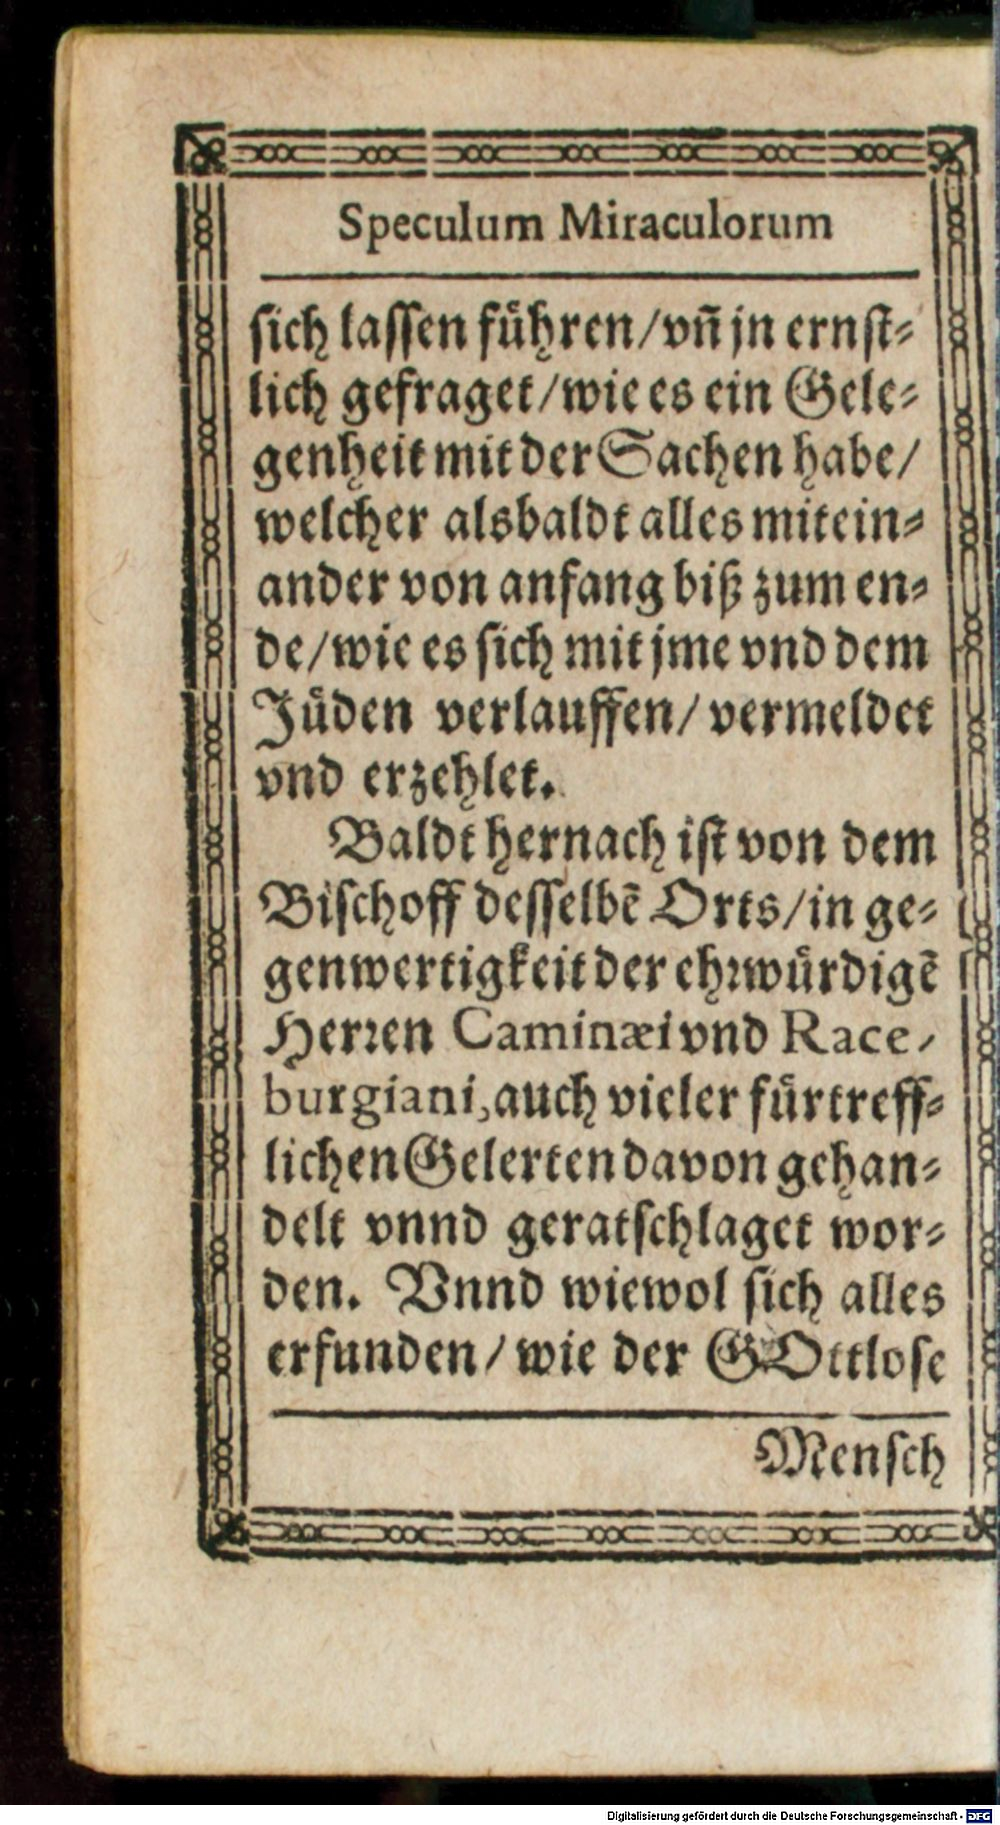 Speculum Miraculorum
ſich laſſen fuͤhren/vñ jn ernſt⸗
lich gefraget/wie es ein Gele⸗
genheit mit der Sachen habe/
welcher alsbaldt alles mitein⸗
ander von anfang biß zum en⸗
de/wie es ſich mit jme vnd dem
Juͤden verlauffen/ vermeldet
vnd erzehlet.
Baldt hernach iſt von dem
Biſchoff deſſelbẽ Orts/in ge⸗
genwertigkeit der ehꝛwuͤrdigẽ
Herꝛen Caminæi vnd Race-
burgiani, auch vieler fuͤrtreff⸗
lichen Gelerten davon gehan⸗
delt vnnd geratſchlaget wor⸗
den. Vnnd wiewol ſich alles
erfunden/ wie der GOttloſe
Menſch
Digitalisierung gefördert durch die Deutsche Forschungsgemeinschaft - DFG